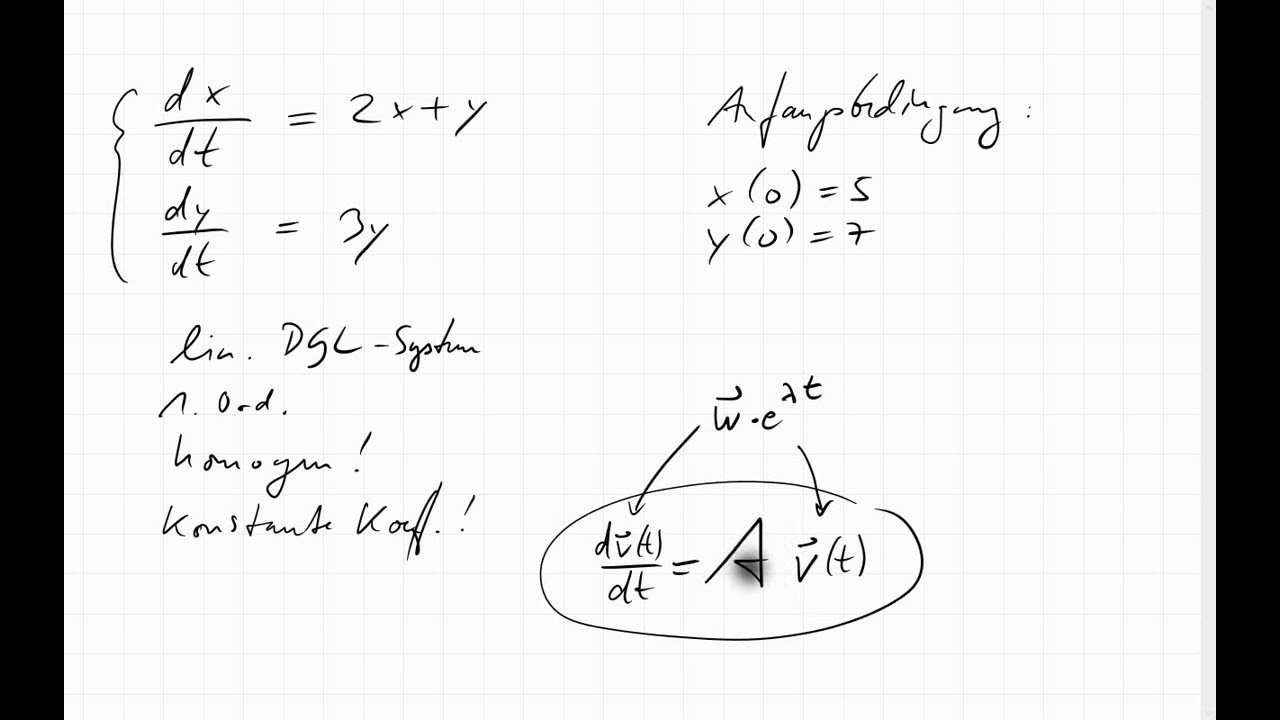 dx/dt = 2x+y
dy/dt = 3y
Anfangsbedingung:
x(0) = 5
y(0) = 7
lin. DGL-System
1. Ord.
homogen!
Konstante Koeff.!
w⃗·e^{λt}
dv⃗(t)/dt = A v⃗(t)